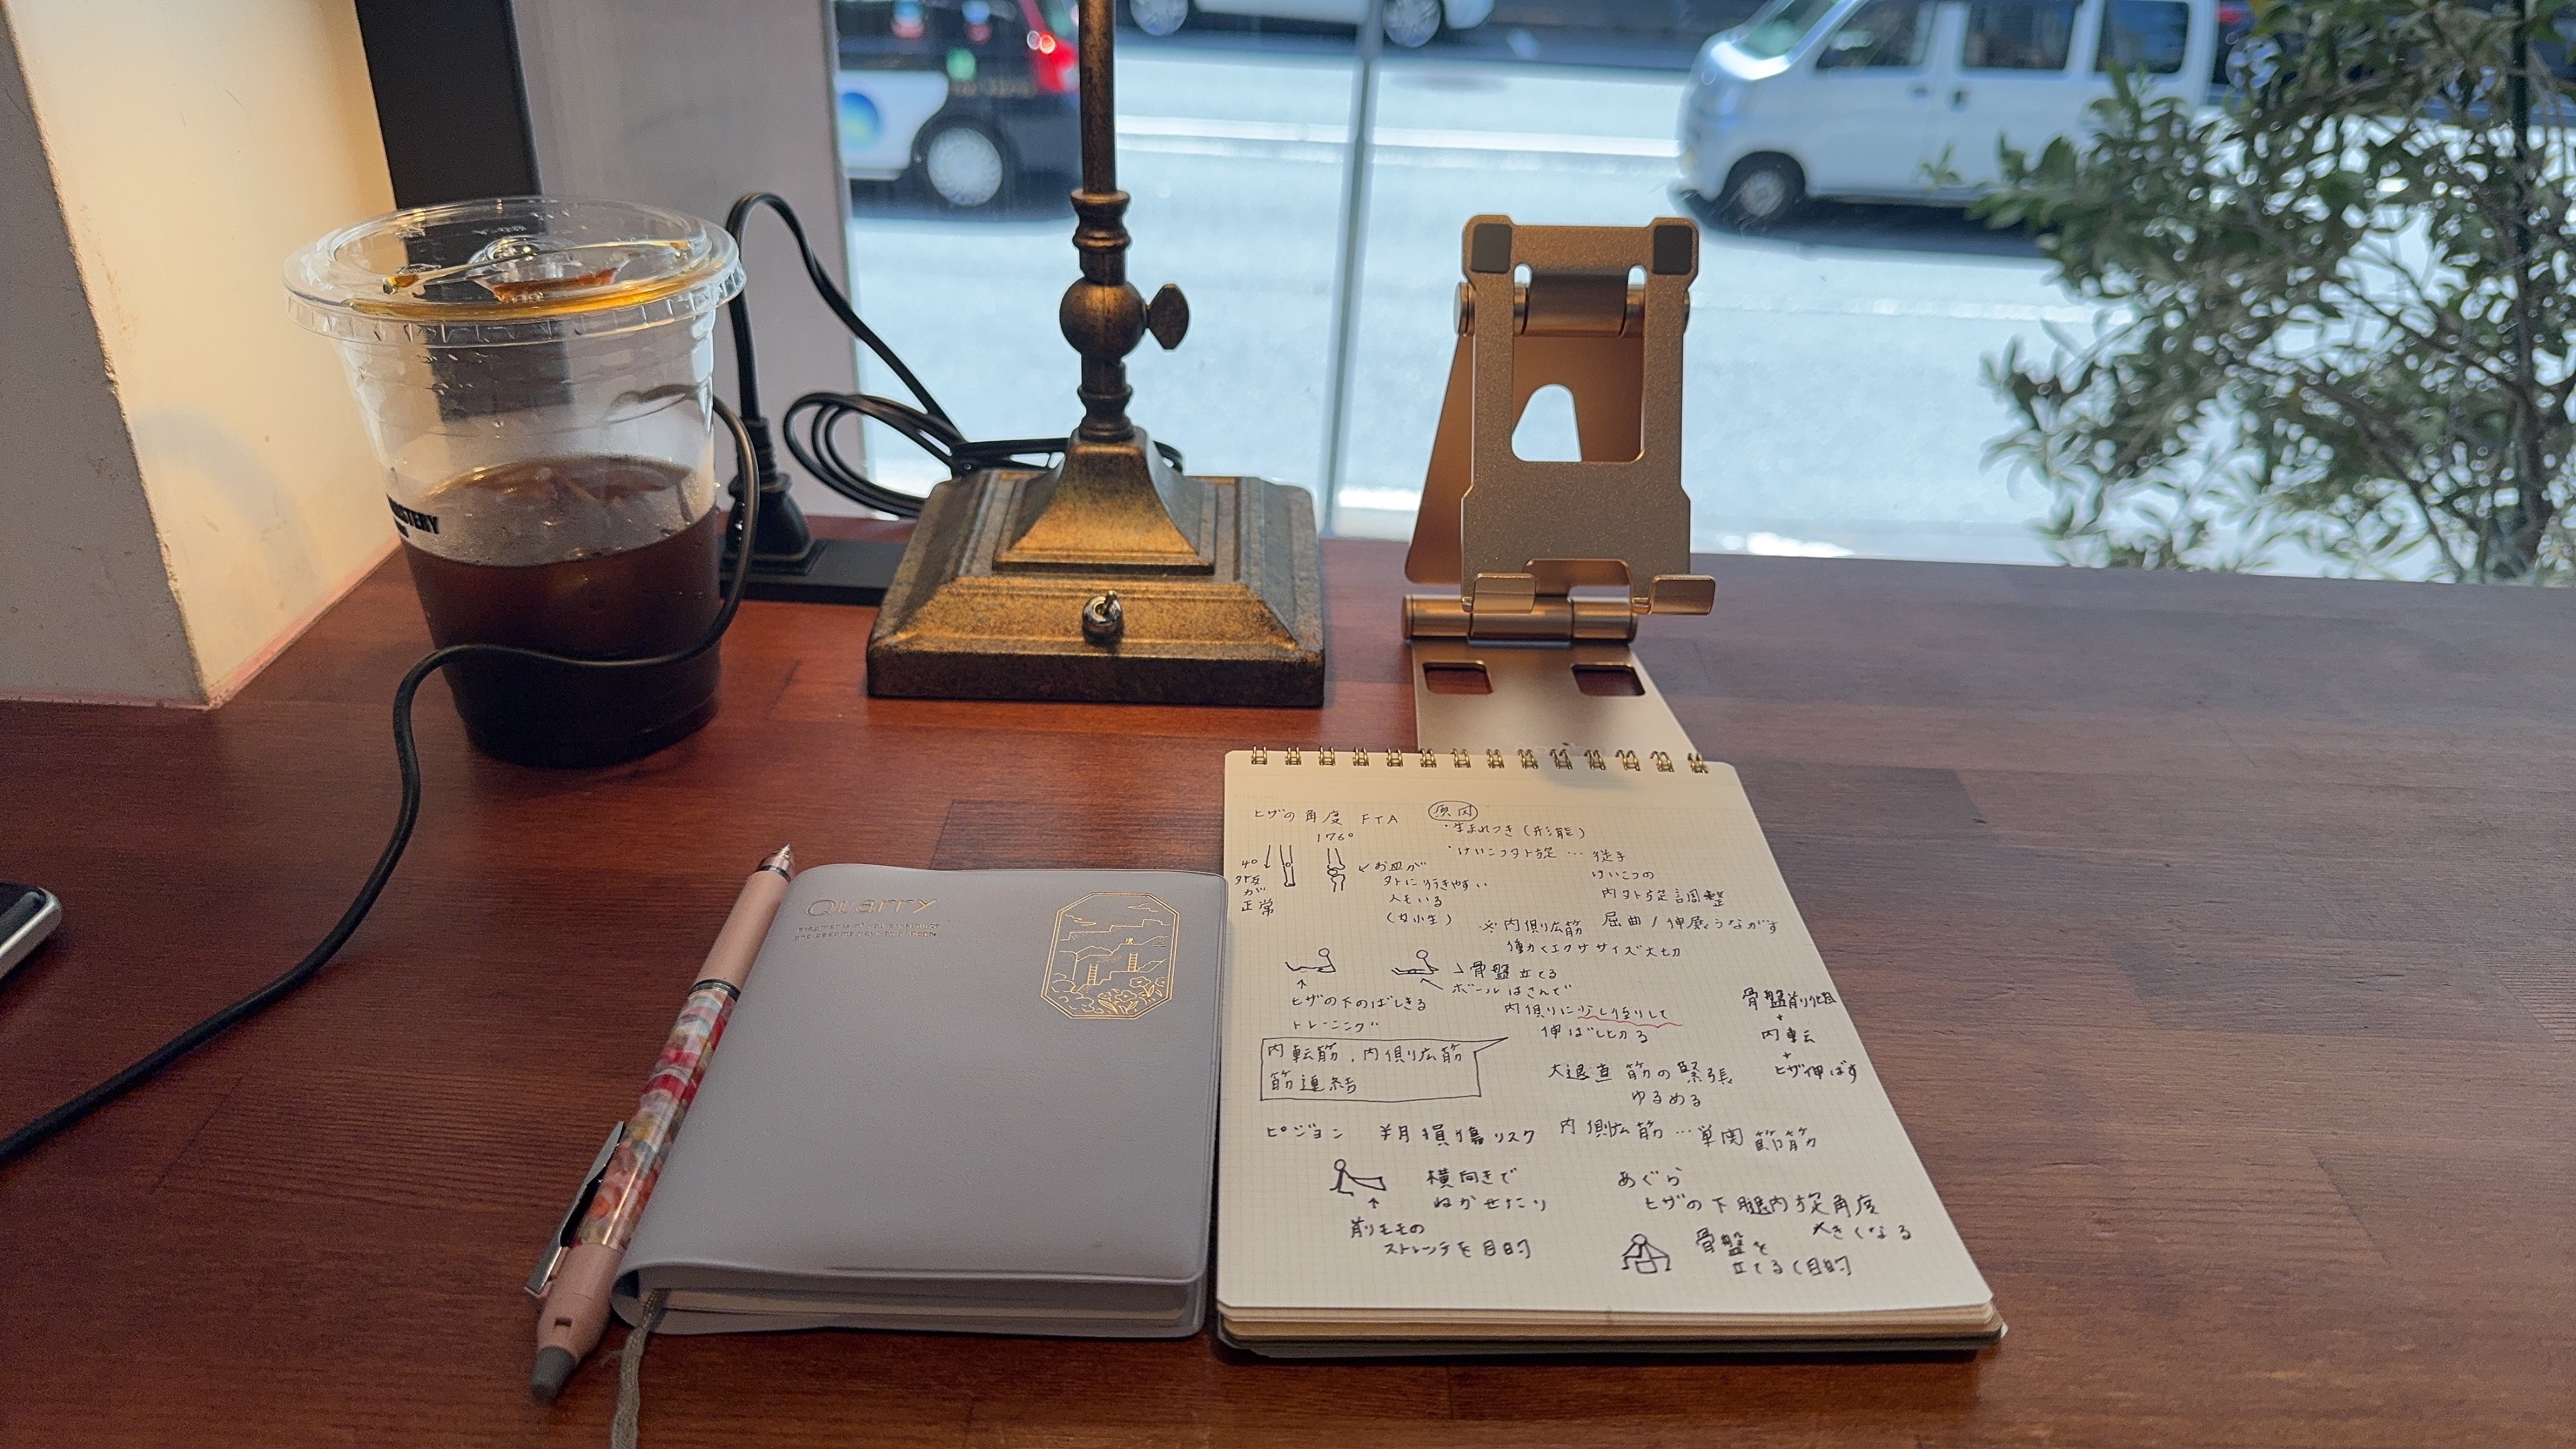 Quarry
ヒザの角度 FTA
176°
4°
外反
が
正常
お皿が
外に行きやすい
人もいる
(女性)
原因
・生まれつき(形態)
・けいこつ外旋 … 徒手
けいこつの
内外旋調整
屈曲/伸展うながす
※内側広筋
働くエクササイズ大切
骨盤立てる
ボールはさんで
内側に少し絞りして
伸ばし切る
ヒザの下のばしきる
トレーニング
内転筋、内側広筋
筋連結
骨盤前傾
+
内転
+
ヒザ伸ばす
大退直筋の緊張
ゆるめる
ピジョン 半月損傷リスク
内側広筋…単関節筋
横向きで
ねかせたり
前モモの
ストレッチを目的
あぐら
ヒザの下腿内旋角度
大きくなる
骨盤を
立てる(目的